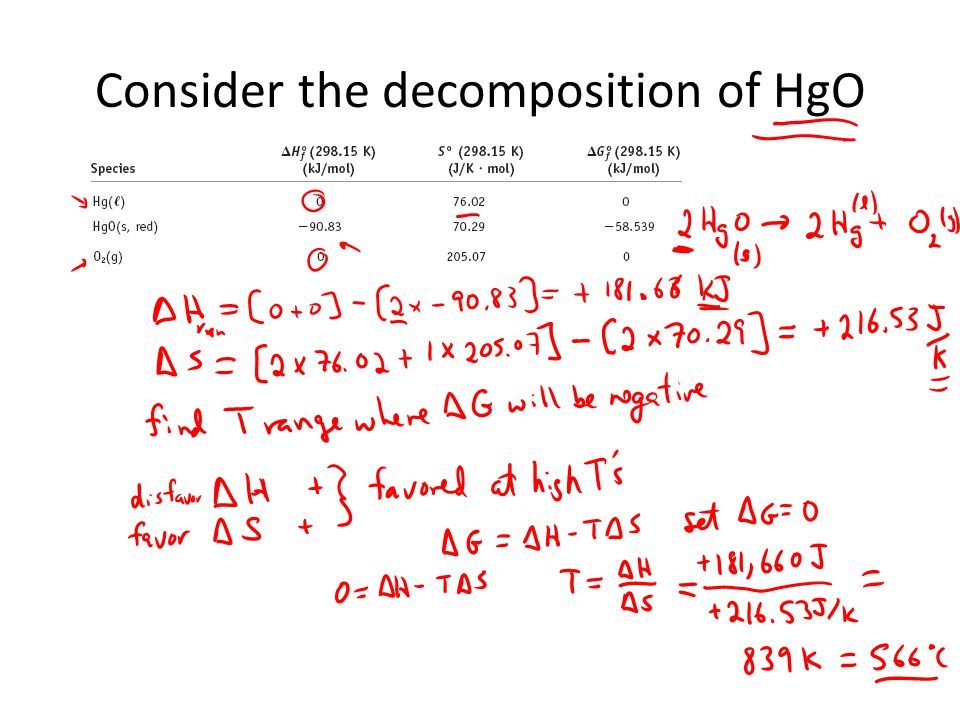 Consider the decomposition of HgO
ΔH°f (298.15 K) S° (298.15 K) ΔG°f (298.15 K)
Species (kJ/mol) (J/K · mol) (kJ/mol)
Hg(ℓ) 0 76.02 0
HgO(s, red) −90.83 70.29 −58.539
O₂(g) 0 205.07 0
2 HgO (s) → 2 Hg (l) + O₂ (g)
ΔH rxn = [0+0] − [2 x −90.83] = + 181.66 kJ
ΔS = [2 x 76.02 + 1 x 205.07] − [2 x 70.29] = + 216.53 J/K
find T range where ΔG will be negative
disfavor ΔH + } favored at high T's
favor ΔS +
ΔG = ΔH − TΔS set ΔG = 0
0 = ΔH − TΔS T = ΔH/ΔS = +181,660 J / +216.53 J/K =
839 K = 566°C